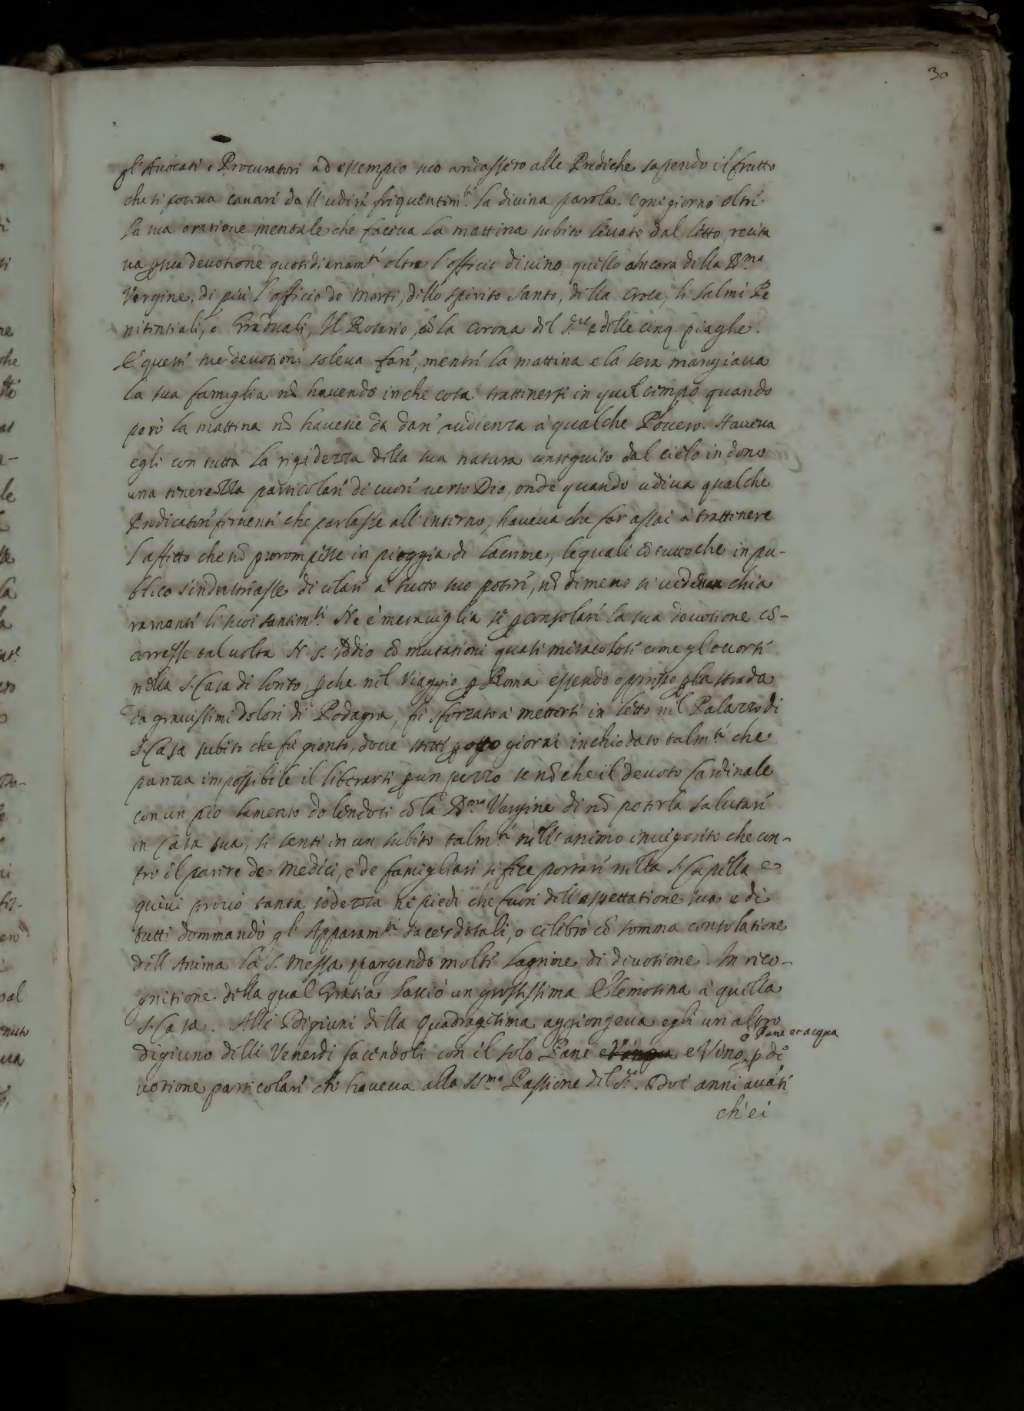 30
gl'Avocati e Procuratori ad essempio suo andassero alle Prediche sapendo il frutto
che si poteva cavare dall'udire frequentem.te la divina parola. Ogni giorno oltre
la sua oratione mentale che faceva la mattina subito levato dal letto, recita
va p sua devotione quotidianam.te oltre l'officio divino, quello ancora della B.ma
Vergine, di più l'officio de Morti, dello Spirito Santo, della Croce, li Salmi Pe
nitentiali, e Graduali, Il Rosario, cõ la Corona del S.re e delle cinq. piaghe.
E queste sue devotioni soleva fare, mentre la mattina e la sera mangiava
la sua famiglia nõ havendo in che cosa trattenersi in quel tempo quando
però la mattina nõ havesse da dare audienza à qualche Povero. Haveva
egli con tutta la rigidezza della sua natura conseguito dal cielo in dono
una tenerezza particolare di cuore verso Dio, onde quando udiva qualche
Predicatore fervente che parlasse all'interno, haveva che far assai à trattenere
l'affetto che nõ prorompesse in pioggia di lacrime, le quali cõ tutto che in pu-
blico s'industriasse di celare a tutto suo potere, nõ dimeno si vedeva chia
ramente li suoi sentim.ti Ne è meraviglia se p consolare la sua devotione cõ-
corresse tal volta N. S. Iddio cõ mutationi quasi miracolose come gl'occorse
nella S. Casa di Loreto, p che nel Viaggio p Roma essendo oppresso p la strada
da gravissimi dolori di Podagra, fu sforzato à mettersi in letto nel Palazzo di
S. Casa subito che fù gionto, dove stette p otto giorni inchiodato talm.te che
pareva impossibile il liberarsi p un pezzo se nõ che il devoto Cardinale
con un pio lamento dolendosi cõ la B.ma Vergine di nõ poterla salutare
in Casa sua, si sentì in un subito talm.te nell'animo invigorito che con-
tro il parere de Medici, e de famigliari si fece portare nella S. Capella e
quivi provò tanta sodezza ne piedi che fuori dell'aspettatione sua e di
tutti dommandò gl'Apparam.ti sacerdotali, e celebrò cõ somma consolatione
dell'Anima la S. Messa spargendo molte lagrime di divotione. In reco-
gnitione della qual Gratia lasciò un grossissima Elemosina à quella
S. Casa. Alli Digiuni della Quadragesima aggiongeva egli un altro
digiuno delli Venerdi facendoli con il solo Pane e Vino, ò Pane et acqua p di
votione particolare che haveva alla S.ma Passione del S.re. E doi anni avãti
ch'ei